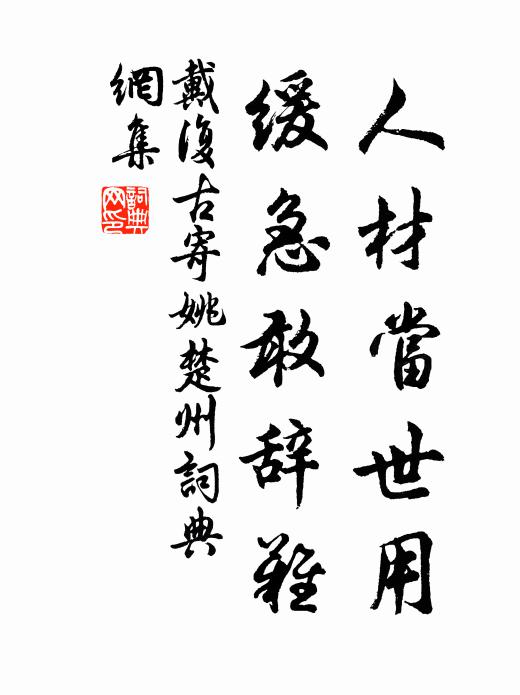 人材當世用
缓急敢辞難
戴復古寄姚楚州詞典
網集
詞典
网印